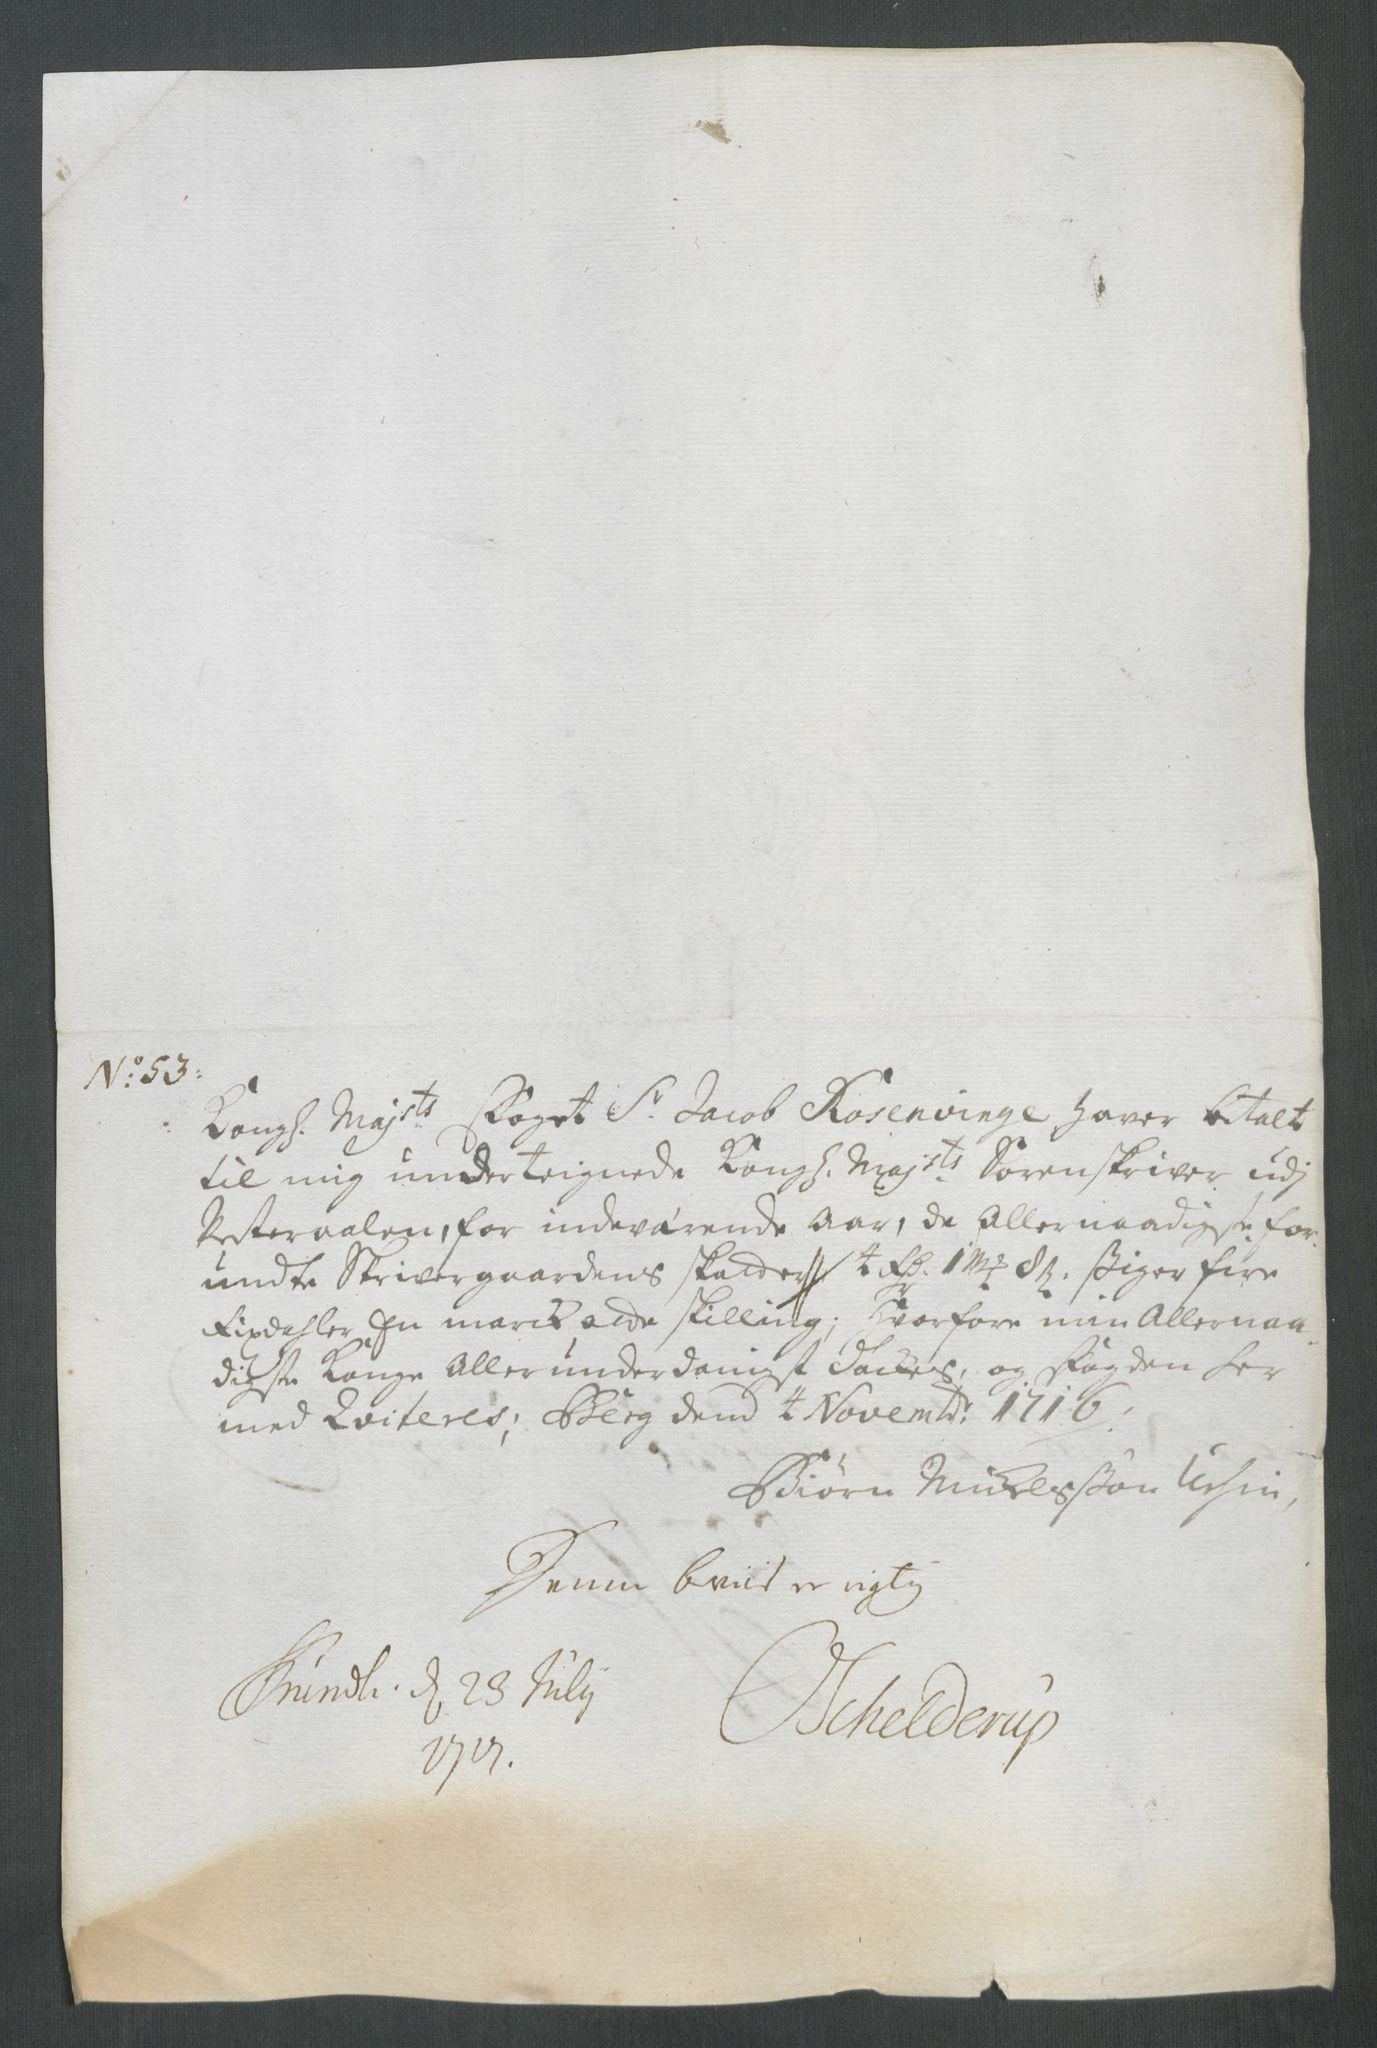 No: 53:
Kongl. Majsts Foget Sr. Jacob Rosenvinge haver betalt
til mig underteignede Kongl. Majsts Sorenskriver udj
Vesteraalen, for indeværende Aar, de Allernaadigste for-
undte Skrivergaardens skatter 4 Rd. 1 mk 8 s. siger fire
Rixdahler En marck otte skilling; hvorfore min Allernaa-
digste Konge Allerunderdanigst tackes, og fogden her
med Qviteres; Berg dend 4 Novembr. 1716.
Biørn Michelssøn
Denne beviis er rigtig
Trundh. d. 23 July
1717.
Schelderup